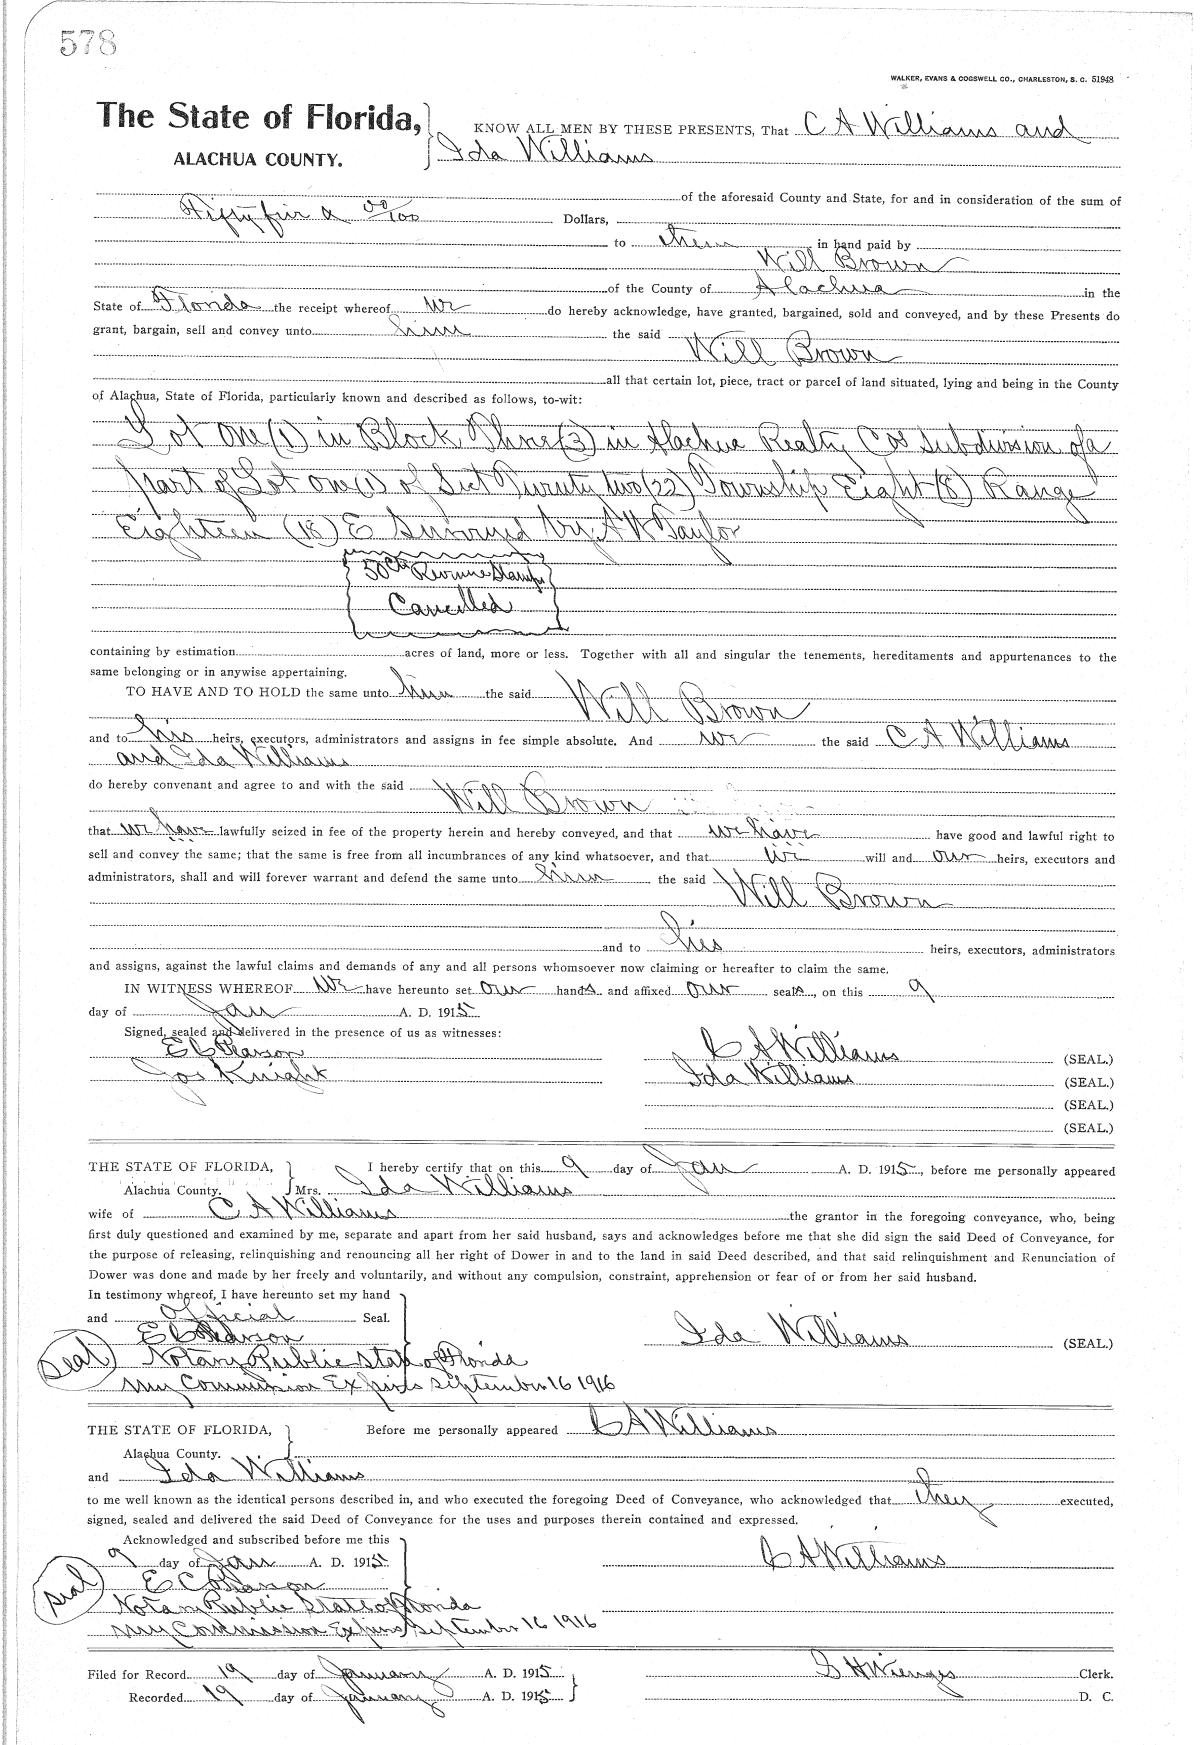 578
WALKER, EVANS & COGSWELL CO., CHARLESTON, S. C. 51948
The State of Florida, KNOW ALL MEN BY THESE PRESENTS, That C A Williams and
ALACHUA COUNTY. Ida Williams
of the aforesaid County and State, for and in consideration of the sum of
Fifty five & 00/100 Dollars,
to them in hand paid by
Will Brown
of the County of Alachua in the
State of Florida the receipt whereof we do hereby acknowledge, have granted, bargained, sold and conveyed, and by these Presents do
grant, bargain, sell and convey unto him the said
Will Brown
all that certain lot, piece, tract or parcel of land situated, lying and being in the County
of Alachua, State of Florida, particularly known and described as follows, to-wit:
Lot one (1) in Block Three (3) in Alachua Realty Cos subdivision of a
part of Lot one (1) of Sect Twenty two (22) Township Eight (8) Range
Eighteen (18) E Surveyed by A W Taylor
50cts Revenue Stamps
Cancelled
containing by estimation acres of land, more or less. Together with all and singular the tenements, hereditaments and appurtenances to the
same belonging or in anywise appertaining.
TO HAVE AND TO HOLD the same unto him the said Will Brown
and to his heirs, executors, administrators and assigns in fee simple absolute. And we the said C A Williams
and Ida Williams
do hereby convenant and agree to and with the said Will Brown
that we have lawfully seized in fee of the property herein and hereby conveyed, and that we have have good and lawful right to
sell and convey the same; that the same is free from all incumbrances of any kind whatsoever, and that we will and our heirs, executors and
administrators, shall and will forever warrant and defend the same unto him the said Will Brown
and to his heirs, executors, administrators
and assigns, against the lawful claims and demands of any and all persons whomsoever now claiming or hereafter to claim the same.
IN WITNESS WHEREOF We have hereunto set our hands and affixed our seals, on this 9
day of Jan A. D. 1915
Signed, sealed and delivered in the presence of us as witnesses:
E C Pearson C A Williams (SEAL.)
Jos Knight Ida Williams (SEAL.)
(SEAL.)
(SEAL.)
THE STATE OF FLORIDA, I hereby certify that on this 9 day of Jan A. D. 1915, before me personally appeared
Alachua County. Mrs. Ida Williams
wife of C A Williams the grantor in the foregoing conveyance, who, being
first duly questioned and examined by me, separate and apart from her said husband, says and acknowledges before me that she did sign the said Deed of Conveyance, for
the purpose of releasing, relinquishing and renouncing all her right of Dower in and to the land in said Deed described, and that said relinquishment and Renunciation of
Dower was done and made by her freely and voluntarily, and without any compulsion, constraint, apprehension or fear of or from her said husband.
In testimony whereof, I have hereunto set my hand
and Official Seal.
E C Pearson Ida Williams (SEAL.)
Seal Notary Public State of Florida
My Commission Expires September 16 1916
THE STATE OF FLORIDA, Before me personally appeared C A Williams
Alachua County.
and Ida Williams
to me well known as the identical persons described in, and who executed the foregoing Deed of Conveyance, who acknowledged that they executed,
signed, sealed and delivered the said Deed of Conveyance for the uses and purposes therein contained and expressed.
Acknowledged and subscribed before me this
9 day of Jan A. D. 1915 C A Williams
Seal E C Pearson
Notary Public State of Florida
My Commission Expires September 16 1916
Filed for Record 19 day of January A. D. 1915 S H Wienges Clerk.
Recorded 19 day of January A. D. 1915 D. C.